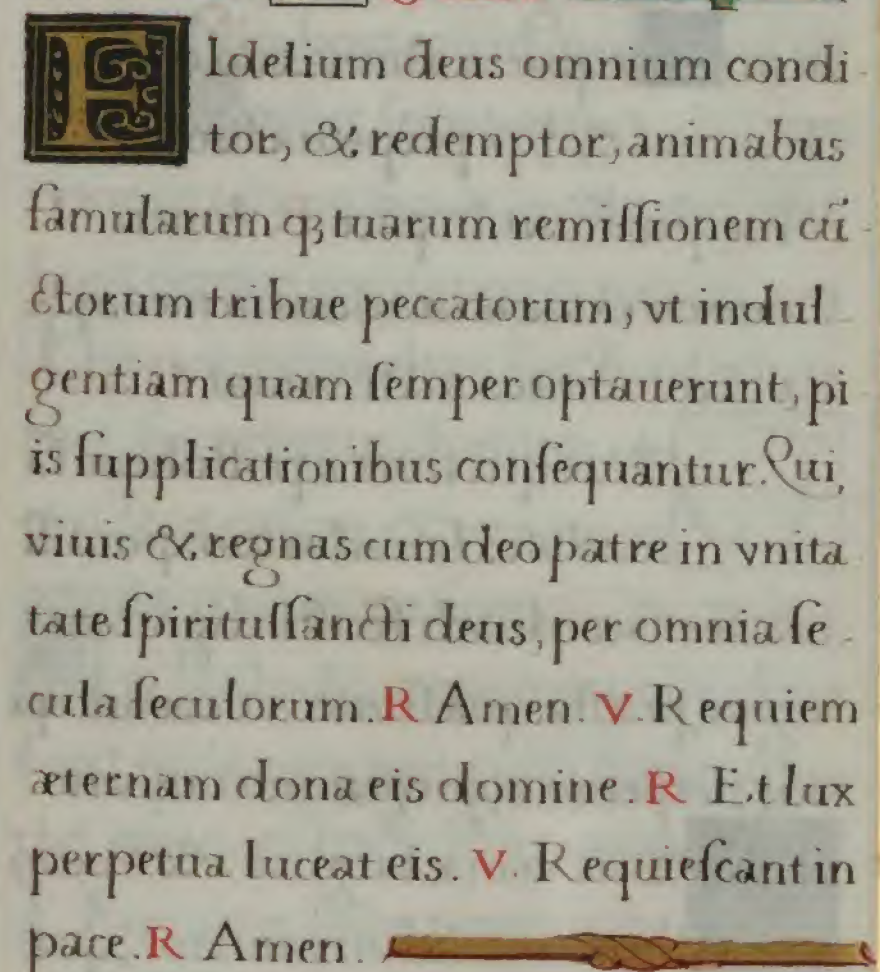 FIdelium deus omnium condi-
tor, & redemptor, animabus
famularum qꝫ tuarum remiſſionem cū-
ctorum tribue peccatorum, vt indul-
gentiam quam ſemper optauerunt, pi-
is ſupplicationibus conſequantur. Qui,
viuis & regnas cum deo patre in vnita
tate ſpirituſſancti deus, per omnia ſe-
cula ſeculorum. R Amen. V. Requiem
æternam dona eis domine. R Et lux
perpetua luceat eis. V. Requieſcant in
pace. R Amen.